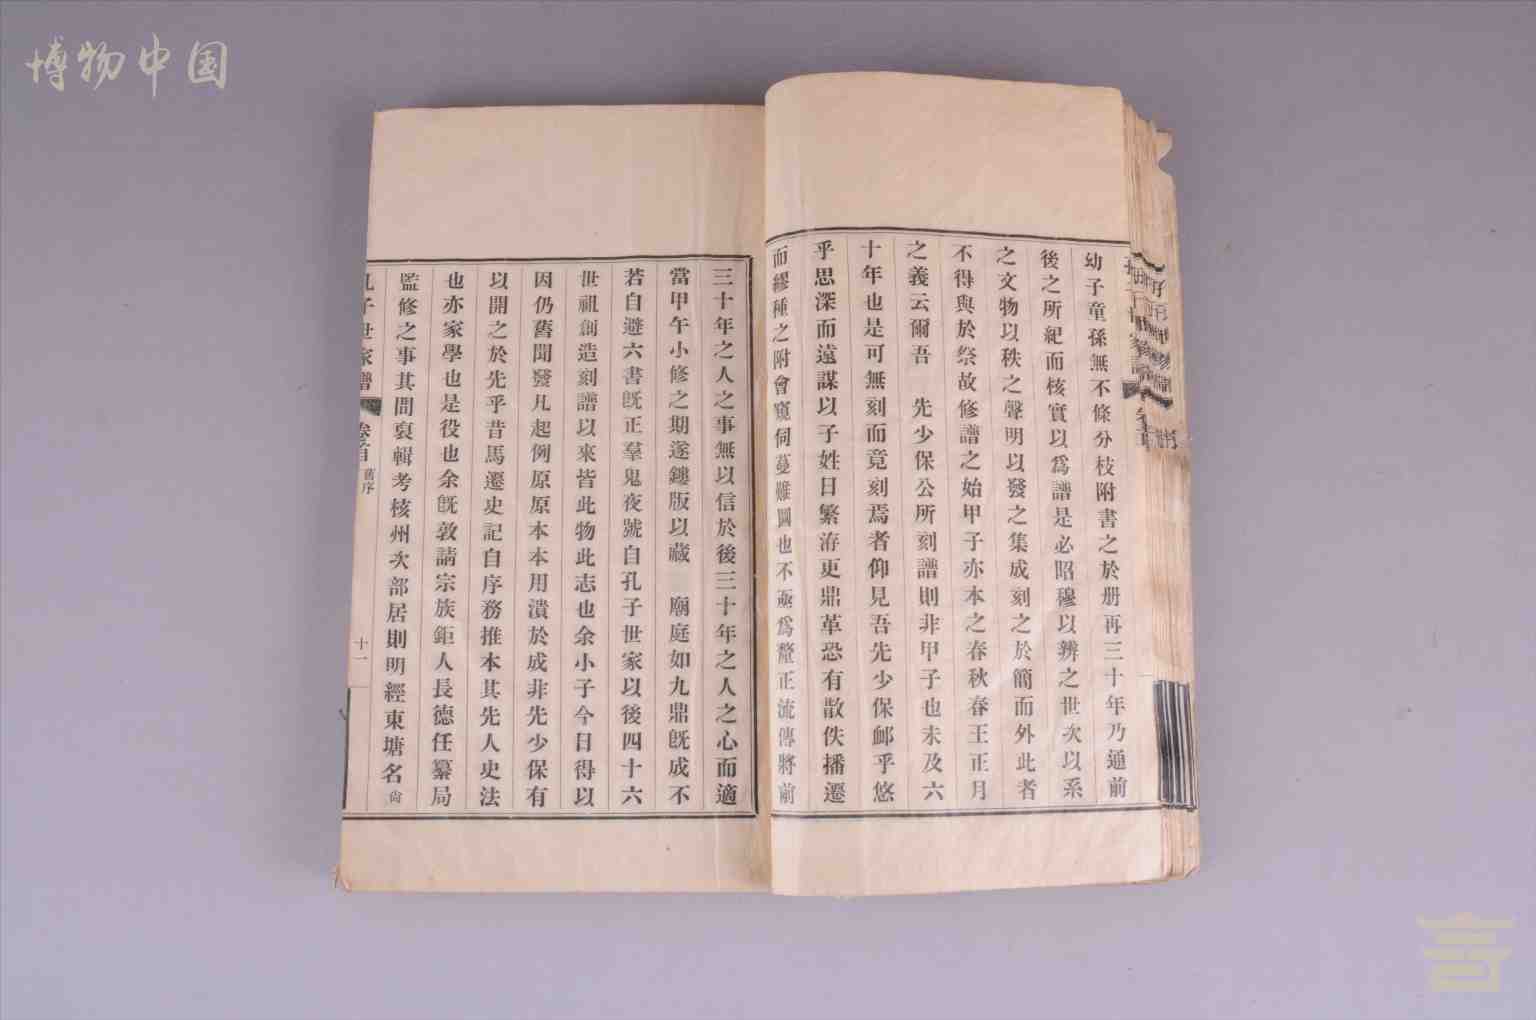 博物中国
幼子童孫無不條分枝附書之於册再三十年乃通前
後之所紀而核實以爲譜是必昭穆以辨之世次以系
之文物以秩之聲明以發之集成刻之於簡而外此者
不得與於祭故修譜之始甲子亦本之春秋春王正月
之義云爾吾 先少保公所刻譜則非甲子也未及六
十年也是可無刻而竟刻焉者仰見吾先少保邮乎悠
乎思深而遠謀以子姓日繁洊更鼎革恐有散佚播遷
而繆種之附會窺伺蔓難圖也不亟爲釐正流傳將前
三十年之人之事無以信於後三十年之人之心而適
當甲午小修之期遂鏤版以藏 廟庭如九鼎旣成不
若自避六書旣正羣鬼夜號自孔子世家以後四十六
世祖創造刻譜以來皆此物此志也余小子今日得以
因仍舊聞發凡起例原原本本用潰於成非先少保有
以開之於先乎昔馬遷史記自序務推本其先人史法
也亦家學也是役也余旣敦請宗族鉅人長德任纂局
監修之事其間裒輯考核州次部居則明經東塘名尙
孔子世家譜 卷首 舊序 十一